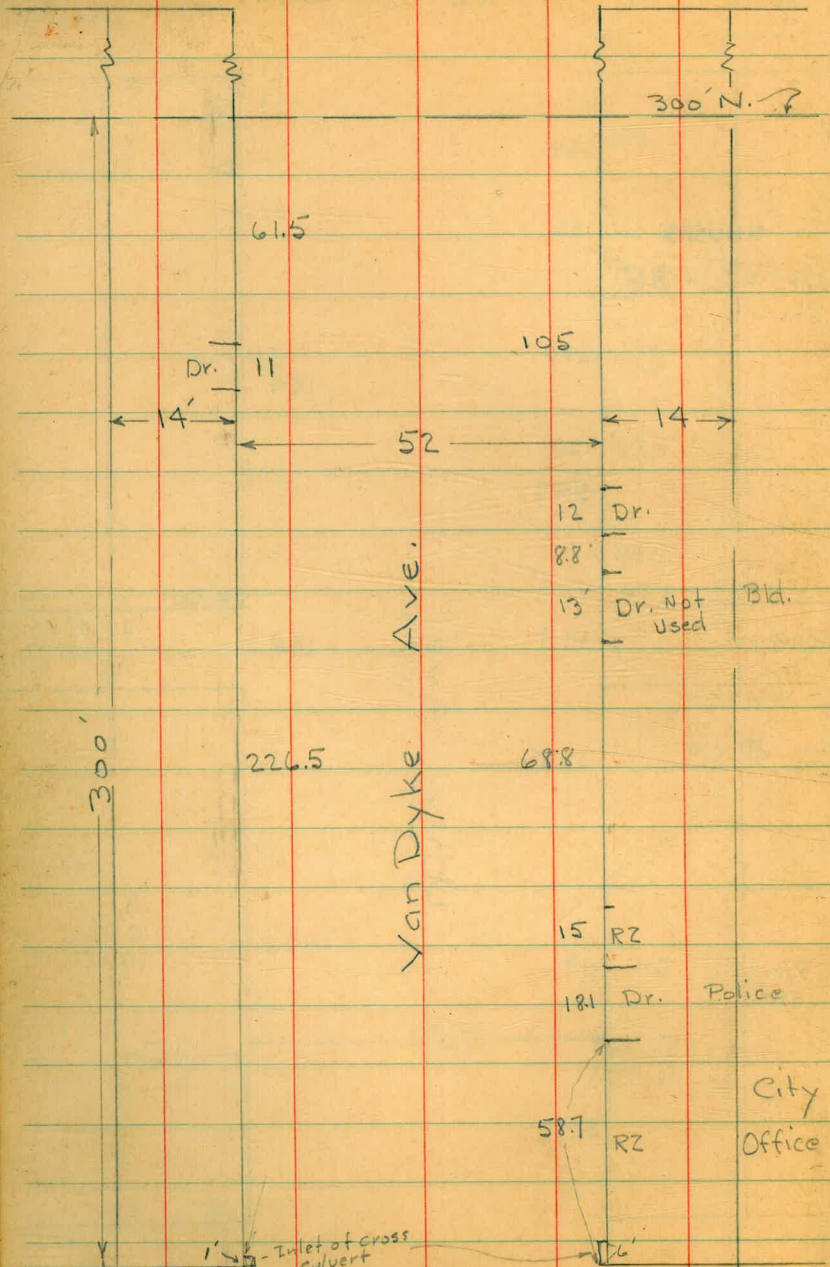 300' N.
61.5
105
Dr. 11
14'
14
52
12 Dr.
8.8
13' Dr. Not
Used
Bld.
Van Dyke Ave.
300'
226.5
68.8
15 RZ
18.1 Dr. Police
City
58.7 RZ Office
1' Inlet of cross
culvert
6'